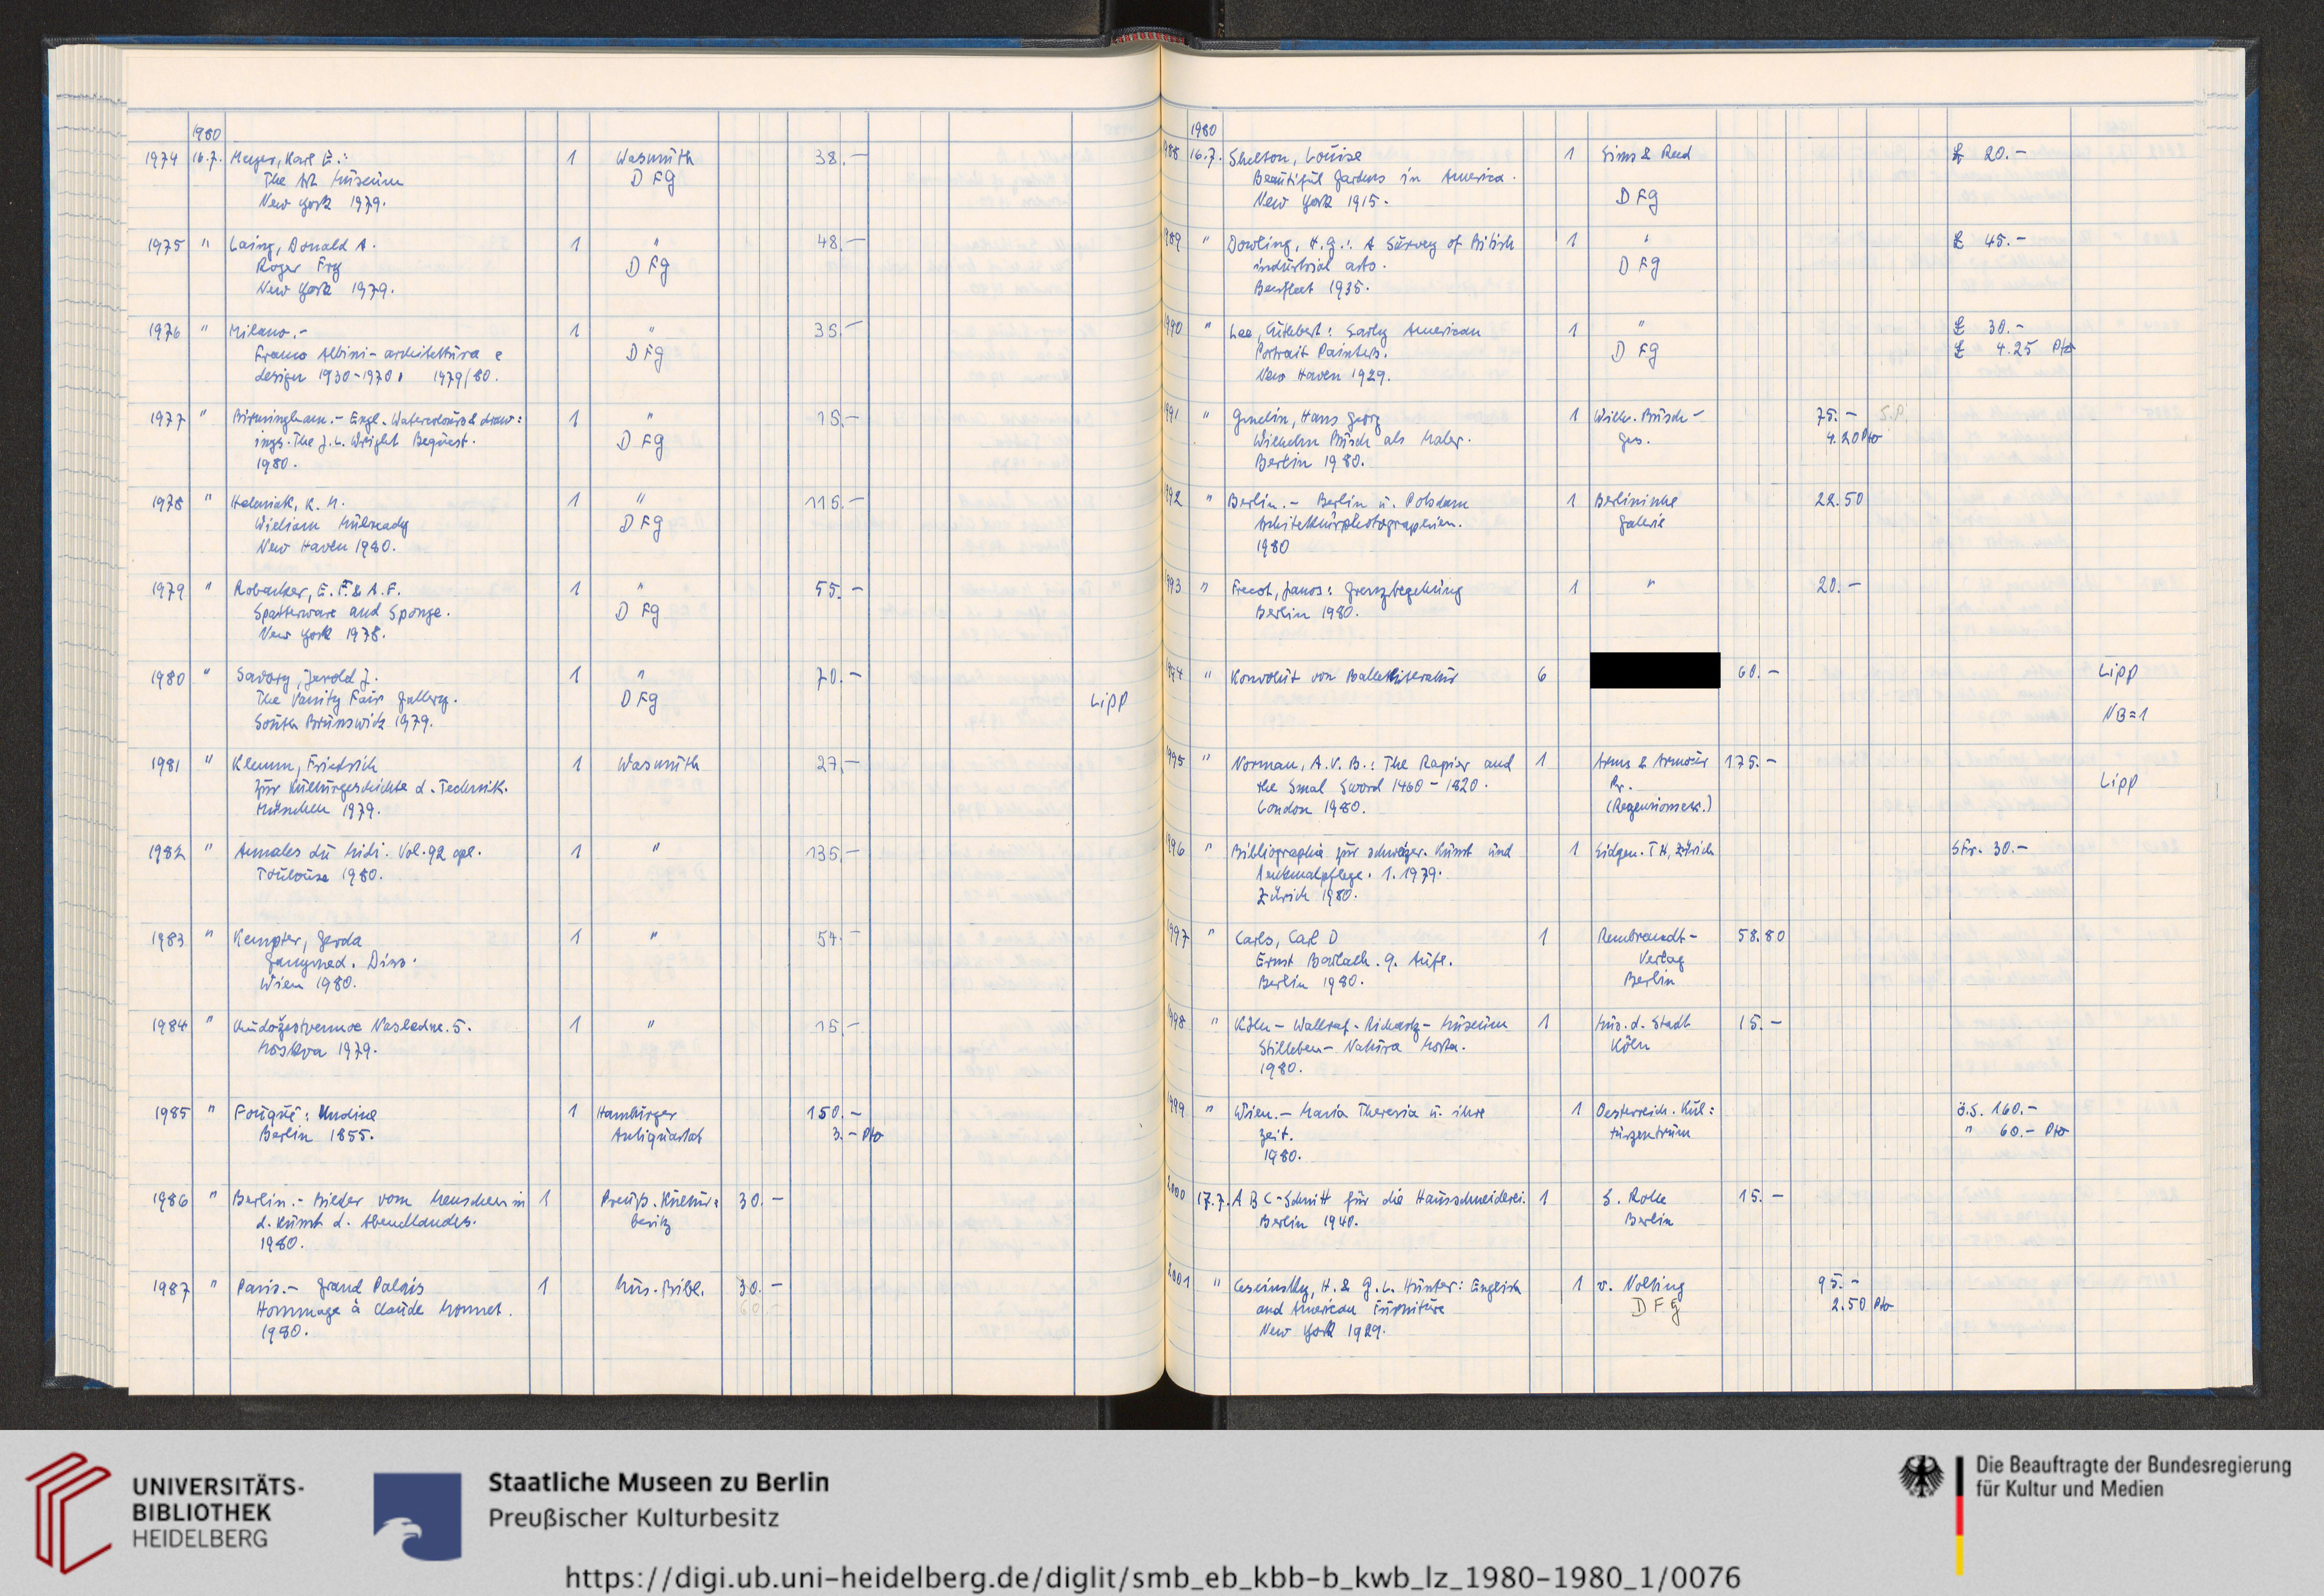 1980
1974 16.7. Meyer, Karl E.: 1 Wasmuth 38.–
The Art Museum D F G
New York 1979.
1975 " Laing, Donald A. 1 " 48.–
Roger Fry D F G
New York 1979.
1976 " Milano.– 1 " 35.–
Franco Albini – architettura e D F G
design 1930–1970. 1979/80.
1977 " Birmingham.– Engl. Watercolours & draw= 1 " 15.–
ings. The J. L. Wright Bequest. D F G
1980.
1978 " Heleniak, K. M. 1 " 115.–
William Mulready D F G
New Haven 1980.
1979 " Robacker, E. F. & A. F. 1 " 55.–
Spatterware and Sponge. D F G
New York 1978.
1980 " Savory, Jerold J. 1 " 70.–
The Vanity Fair Gallery. D F G Lipp
South Brunswick 1979.
1981 " Klemm, Friedrich 1 Wasmuth 27.–
Zur Kulturgeschichte d. Technik.
München 1979.
1982 " Annales du Midi. Vol. 92 cpl. 1 " 135.–
Toulouse 1980.
1983 " Kempter, Gerda 1 " 54.–
Ganymed. Diss.
Wien 1980.
1984 " Chudožestvennoe Nasledne. 5. 1 " 15.–
Moskva 1979.
1985 " Fouqué: Undine 1 Hamburger 150.–
Berlin 1855. Antiquariat 3.– Pto
1986 " Berlin.– Bilder vom Menschen in 1 Preuß. Kultur= 30.–
d. Kunst d. Abendlandes. besitz
1980.
1987 " Paris.– Grand Palais 1 Mus. Bibl. 30.–
Hommage à Claude Monnet.
1980.
1980
1988 16.7. Shelton, Louise 1 Sims & Reed £ 20.–
Beautiful Gardens in America.
New York 1915. D F G
1989 " Dowling, H. G.: A Survey of British 1 " £ 45.–
industrial arts. D F G
Benfleet 1935.
1990 " Lee, Cuthbert: Early American 1 " £ 30.–
Portrait Painters. D F G £ 4.25 Pto
New Haven 1929.
1991 " Gmelin, Hans Georg 1 Wilh. Busch– 75.– S.P.
Wilhelm Busch als Maler. Ges. 4.20 Pto
Berlin 1980.
1992 " Berlin.– Berlin u. Potsdam 1 Berlinische 22.50
Architekturphotographien. Galerie
1980
1993 " Frecot, Janos: Grenzbegehung 1 " 20.–
Berlin 1980.
1994 " Konvolut von Ballettliteratur 6 60.– Lipp
NB=1
1995 " Norman, A. V. B.: The Rapier and 1 Arms & Armour 175.–
the Smal Sword 1460–1820. Pr. Lipp
London 1980. (Rezensionsex.)
1996 " Bibliographie zur schweizer. Kunst und 1 Eidgen. TH, Zürich SFr. 30.–
Denkmalpflege. 1. 1979.
Zürich 1980.
1997 " Carls, Carl D 1 Rembrandt– 58.80
Ernst Barlach. 9. Aufl. Verlag
Berlin 1980. Berlin
1998 " Köln – Wallraf-Richartz-Museum 1 Mus. d. Stadt 15.–
Stilleben – Natura Morta. Köln
1980.
1999 " Wien.– Maria Theresia u. ihre 1 Oesterreich. Kul= ö.S. 160.–
Zeit. turzentrum " 60.– Pto
1980.
2000 17.7. A B C-Schnitt für die Hausschneiderei. 1 S. Rolle 15.–
Berlin 1940. Berlin
2001 " Cescinsky, H. & G. L. Hunter: English 1 v. Nolting 95.–
and American furniture D F G 2.50 Pto
New York 1929.
UNIVERSITÄTS-
BIBLIOTHEK
HEIDELBERG
Staatliche Museen zu Berlin
Preußischer Kulturbesitz
Die Beauftragte der Bundesregierung
für Kultur und Medien
https://digi.ub.uni-heidelberg.de/diglit/smb_eb_kbb-b_kwb_lz_1980-1980_1/0076